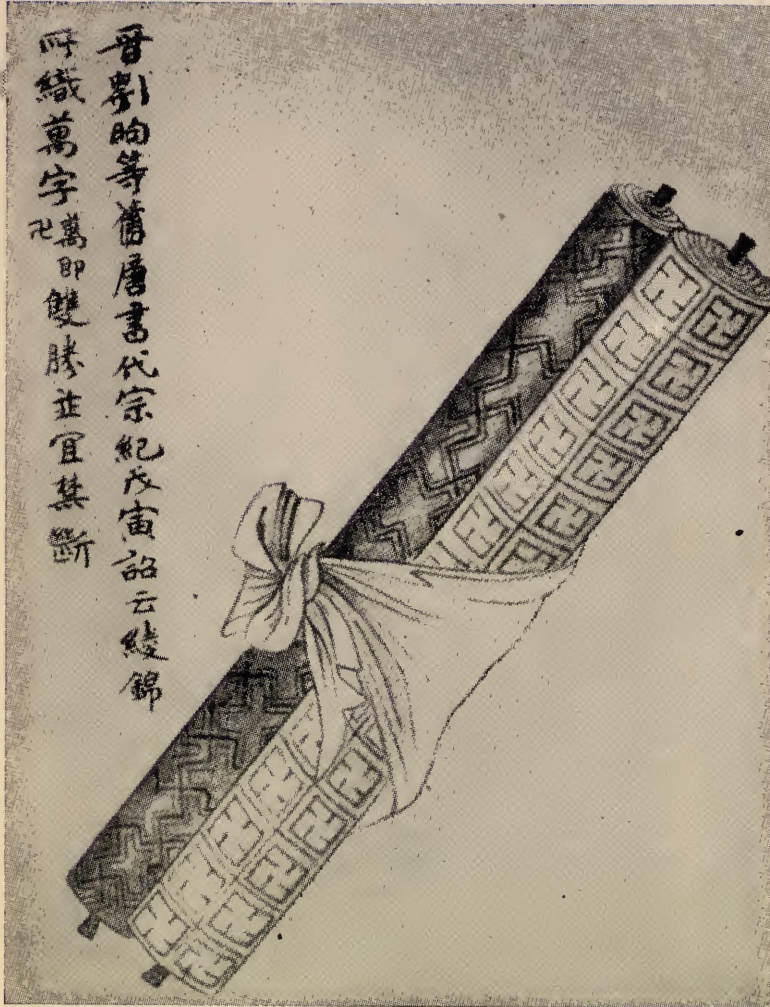 晉劉昫等舊唐書代宗紀戊寅詔云綾錦
所織萬字卍萬即雙勝並宜禁斷